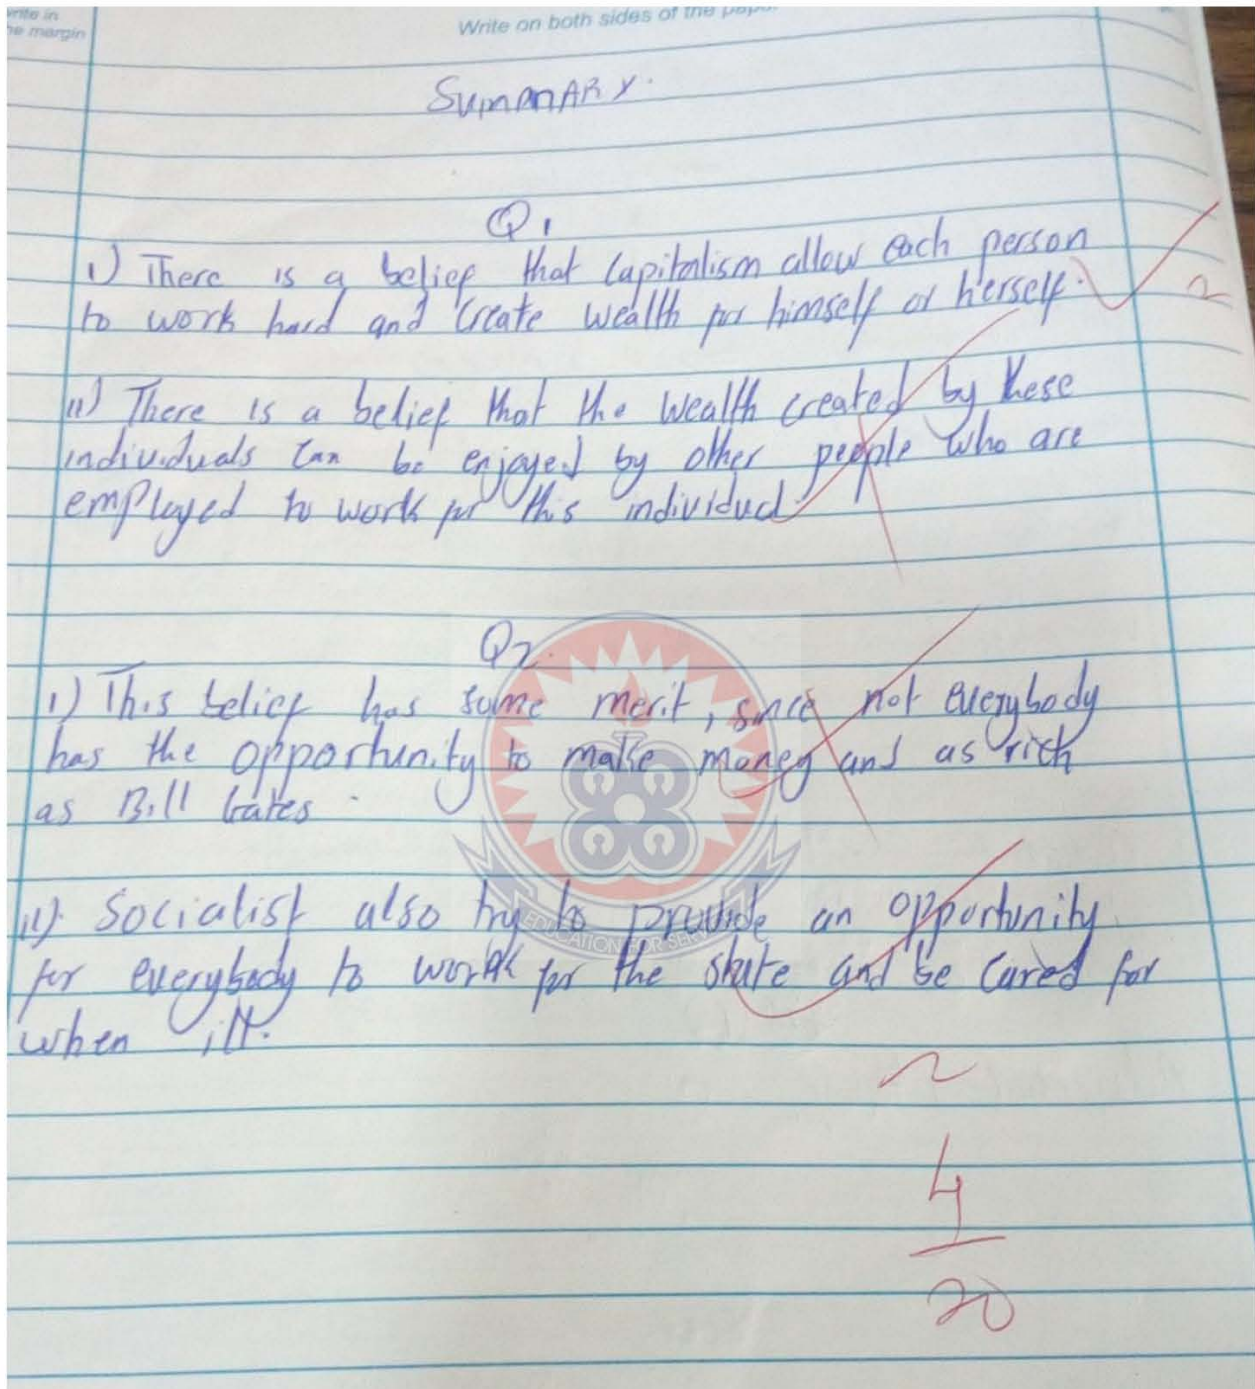 write in
he margin
Write on both sides of the
SUMMARY.
Q1
i) There is a belief that Capitalism allow each person
to work hard and create wealth for himself or herself.
2
ii) There is a belief that the wealth created by these
individuals can be enjoyed by other people who are
employed to work for this individual
Q2.
i) This belief has some merit, since not everybody
has the opportunity to make money and as rich
as Bill Gates.
ii) Socialist also try to provide an opportunity
for everybody to work for the state and be cared for
when ill.
EDUCATION FOR SERVICE
2
4
20